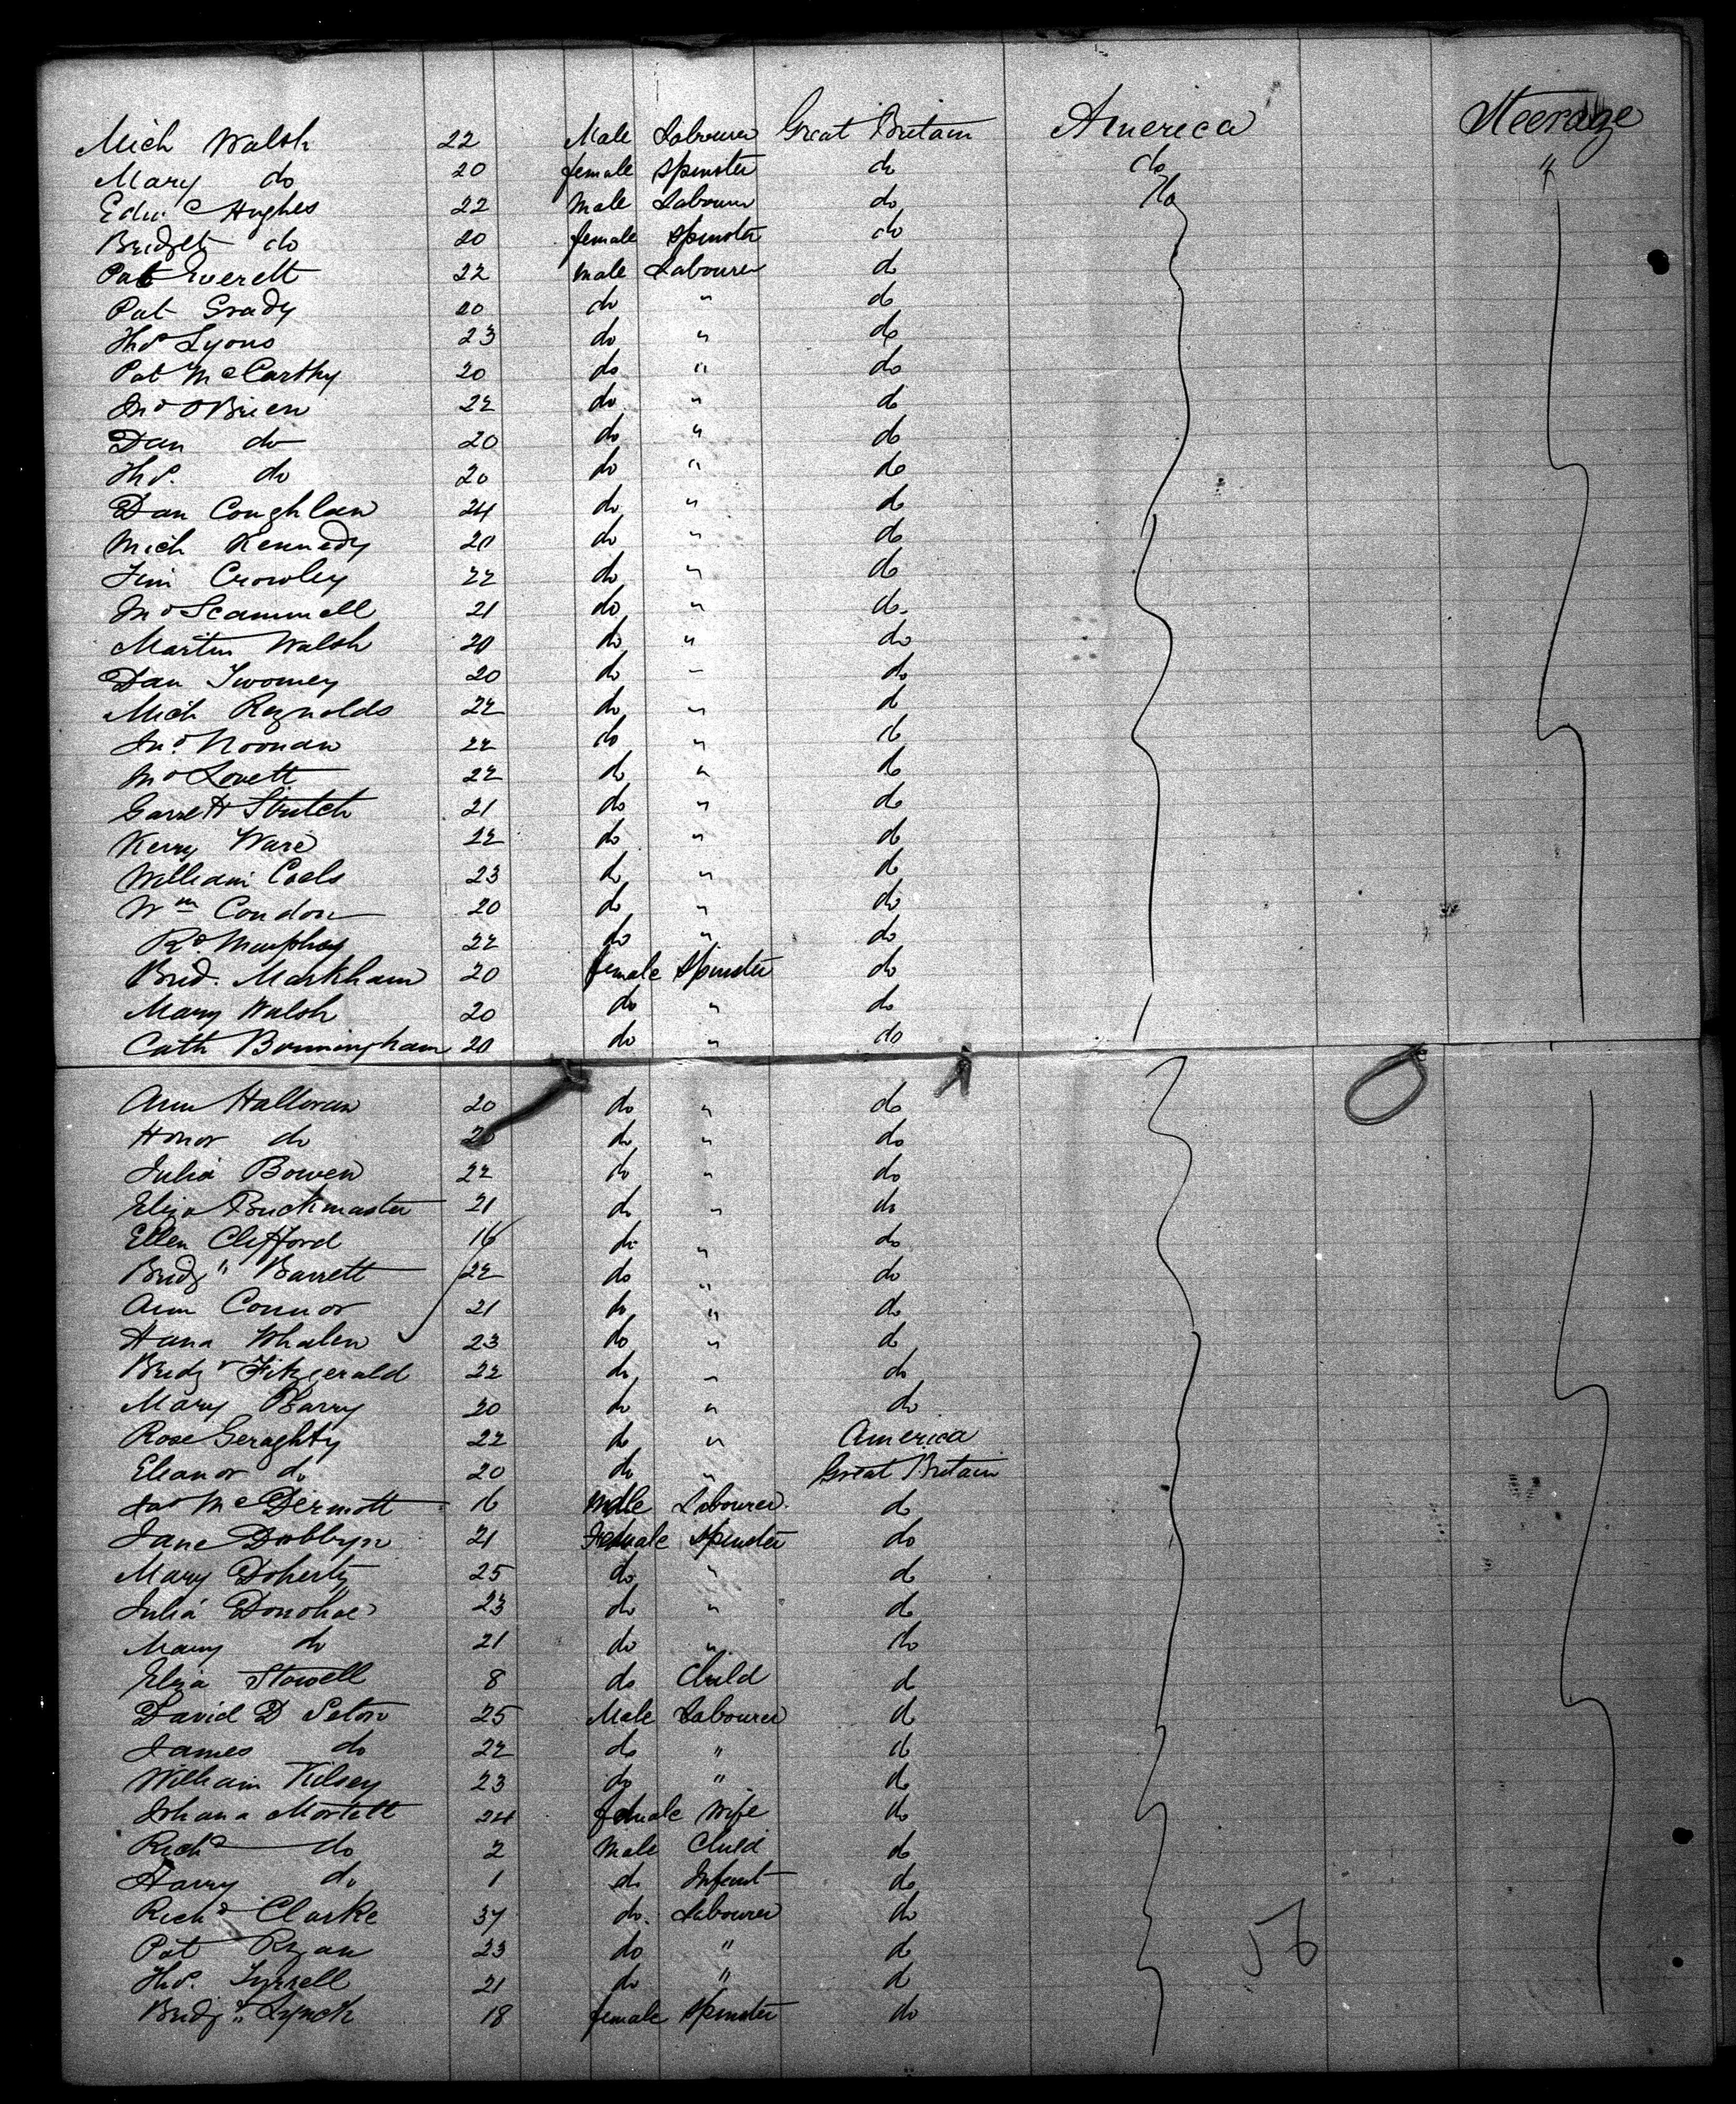 Mich Walsh 22 Male Labourer Great Britain America Steerage
Mary do 20 female Spinster do do "
Edw. Hughes 22 Male Labourer do do
Bridget do 20 female Spinster do
Pat Everett 22 male Labourer do
Pat Grady 20 do " do
Thos Lyons 23 do " do
Pat McCarthy 20 do " do
Jno OBrien 22 do " do
Dan do 20 do " do
Thos. do 20 do " do
Dan Coughlan 24 do " do
Mich Kennedy 20 do " do
Tim Crowley 22 do " do
Jno Scammell 21 do " do
Martin Walsh 20 do " do
Dan Twomey 20 do " do
Mich Reynolds 22 do " do
Jno Noonan 22 do " do
Lovett 22 do " do
Garrett 21 do " do
Kerry Ware 22 do " do
William 23 do " do
Wm Condon 20 do " do
Rd Murphy 22 do " do
Brid. Markham 20 female Spinster do
Mary Walsh 20 do " do
Cath Bermingham 20 do " do
Ann Halloran 20 do " do
Honor do 20 do " do
Julia Bowen 22 do " do
Eliza Buckmaster 21 do " do
Ellen Clifford 16 do " do
Bridg" Barrett 22 do " do
Ann Connor 21 do " do
Hana Whalen 23 do " do
Bridgt Fitzgerald 22 do " do
Mary Barry 20 do " do
Rose Geraghty 22 do " America
Eleanor do 20 do " Great Britain
Jas McDermott 16 Male Labourer do
Jane Dobbyn 21 Female Spinster do
Mary Doherty 25 do " do
Julia Donohoe 23 do " do
Mary do 21 do " do
Eliza Stowell 8 do Child do
David D Seton 25 Male Labourer do
James do 22 do " do
William Kelsey 23 do " do
Johana Mortell 24 female Wife do
Richd do 2 Male Child do
Harry do 1 do Infant do
Richd Clarke 37 do. Labourer do
Pat Ryan 23 do " do
Thos. Tyrrell 21 do " do
Bridgt Lynch 18 female Spinster do
56